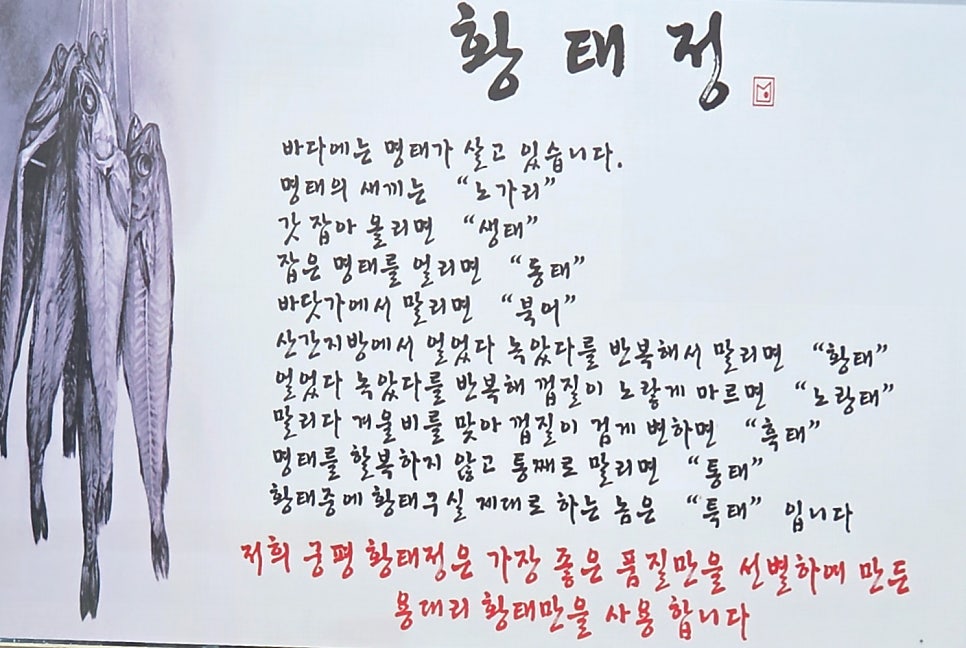 황태정
바다에는 명태가 살고 있습니다.
명태의 새끼는 “노가리”
갓 잡아 올리면 “생태”
잡은 명태를 얼리면 “동태”
바닷가에서 말리면 “북어”
산간지방에서 얼었다 녹았다를 반복해서 말리면 “황태”
얼었다 녹았다를 반복해 껍질이 노랗게 마르면 “노랑태”
말리다 겨울비를 맞아 껍질이 검게 변하면 “흑태”
명태를 할복하지 않고 통째로 말리면 “통태”
황태중에 황태구실 제대로 하는 놈은 “특태” 입니다
저희 궁평 황태정은 가장 좋은 품질만을 선별하여 만든
용대리 황태만을 사용 합니다